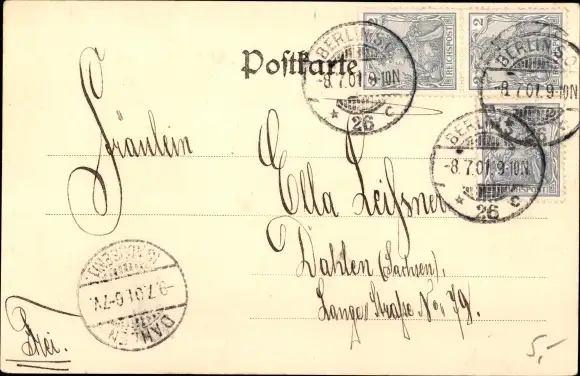 Postkarte
2 REICHSPOST
2 REICHSPOST
REICHSPOST
BERLIN S.O.
-8.7.01. 9-10N
* 26 c
BERLIN S.O.
-8.7.01. 9-10N
BERLIN S.O.
-8.7.01. 9-10N
* 26 c
Fräulein
Ella Leißner
Dahlen (Sachsen),
Lange Straße No. 79.
Frei.
DAHLEN
(SACHSEN)
-9.7.01. 6-7V.
5,-